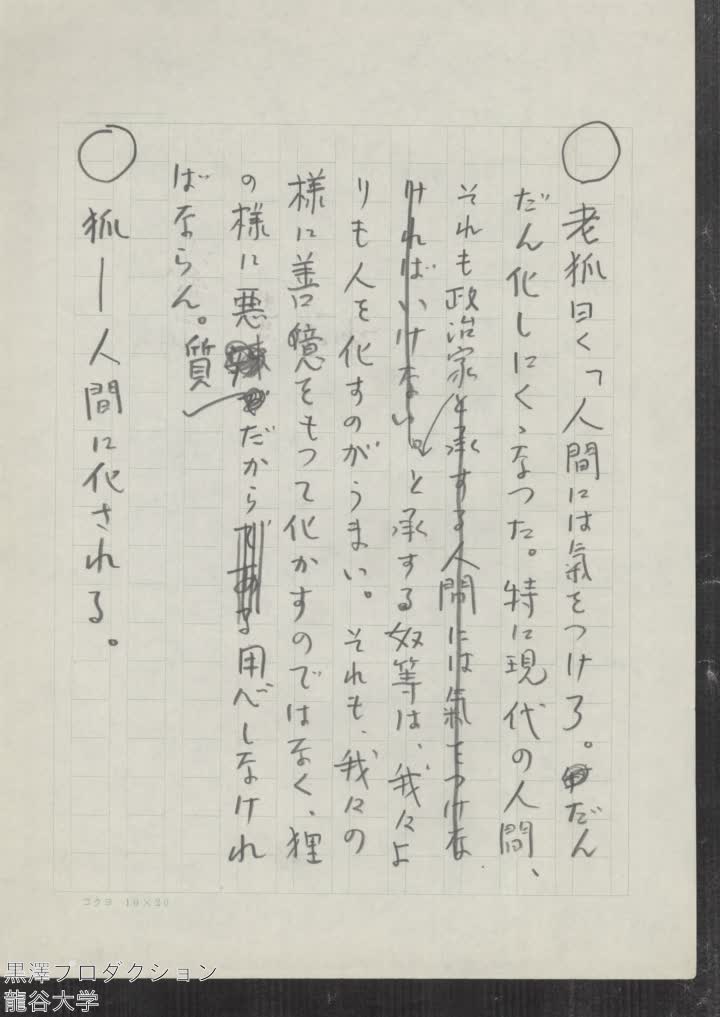 ○ 老狐曰く「人間には氣をつけろ。だん
だん化しにくゝなつた。特に現代の人間、
それも政治家と承する人間には氣をつけな
ければいけない。と承する奴等は、我々よ
りも人を化すのがうまい。それも、我々の
様に善に憶をもつて化かすのではなく、狸
の様に悪だからである用心しなけれ
ばならん。質
○ 狐ー人間に化される。
コクヨ 10×20
黒澤プロダクション
龍谷大学